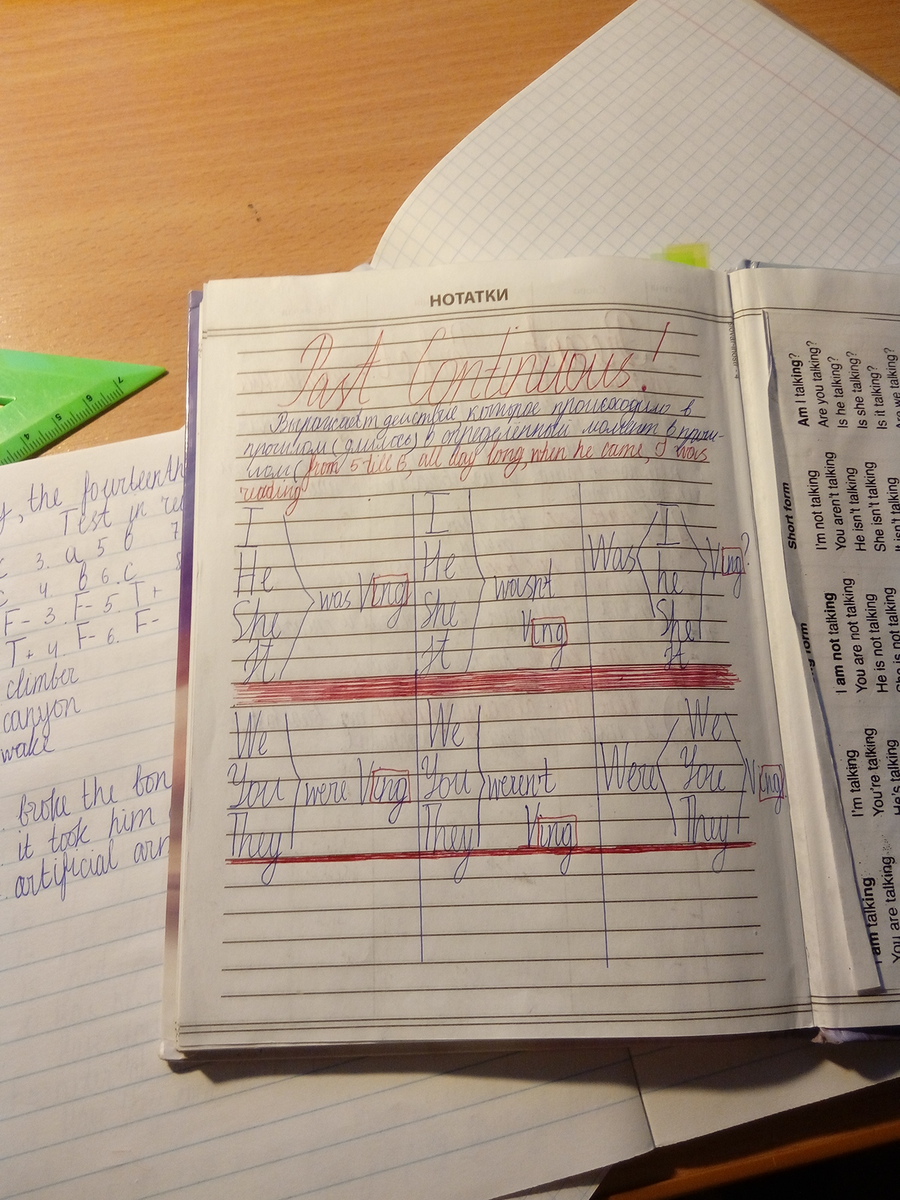 НОТАТКИ
Past Continuous!
Выражает действие которое происходило в
прошлом (длилось) в определенный момент в прош-
лом (from 5 till 6, all day long, when he came, I was
reading)
I
He
She
It
was Ving
I
He
She
It
wasnt
Ving
Was
I
he
She
It
Ving?
We
You
They
were Ving
We
You
They
werent
Ving
Were
We
You
They
Ving
y, the fourteenth
Test in
3. a 5 b 7
4. b 6. c 8
F- 3. F- 5. T+
T+ 4. F- 6. F-
climber
canyon
wake
broke the bon
it took him
artificial arm
7 6 5 4
Am I talking?
Are you talking?
Is he talking?
Is she talking?
Is it talking?
Are we talking?
Short form
I'm not talking
You aren't talking
He isn't talking
She isn't talking
It isn't talking
form
I am not talking
You are not talking
He is not talking
She is not talking
I'm talking
You're talking
He's talking
I am talking
You are talking